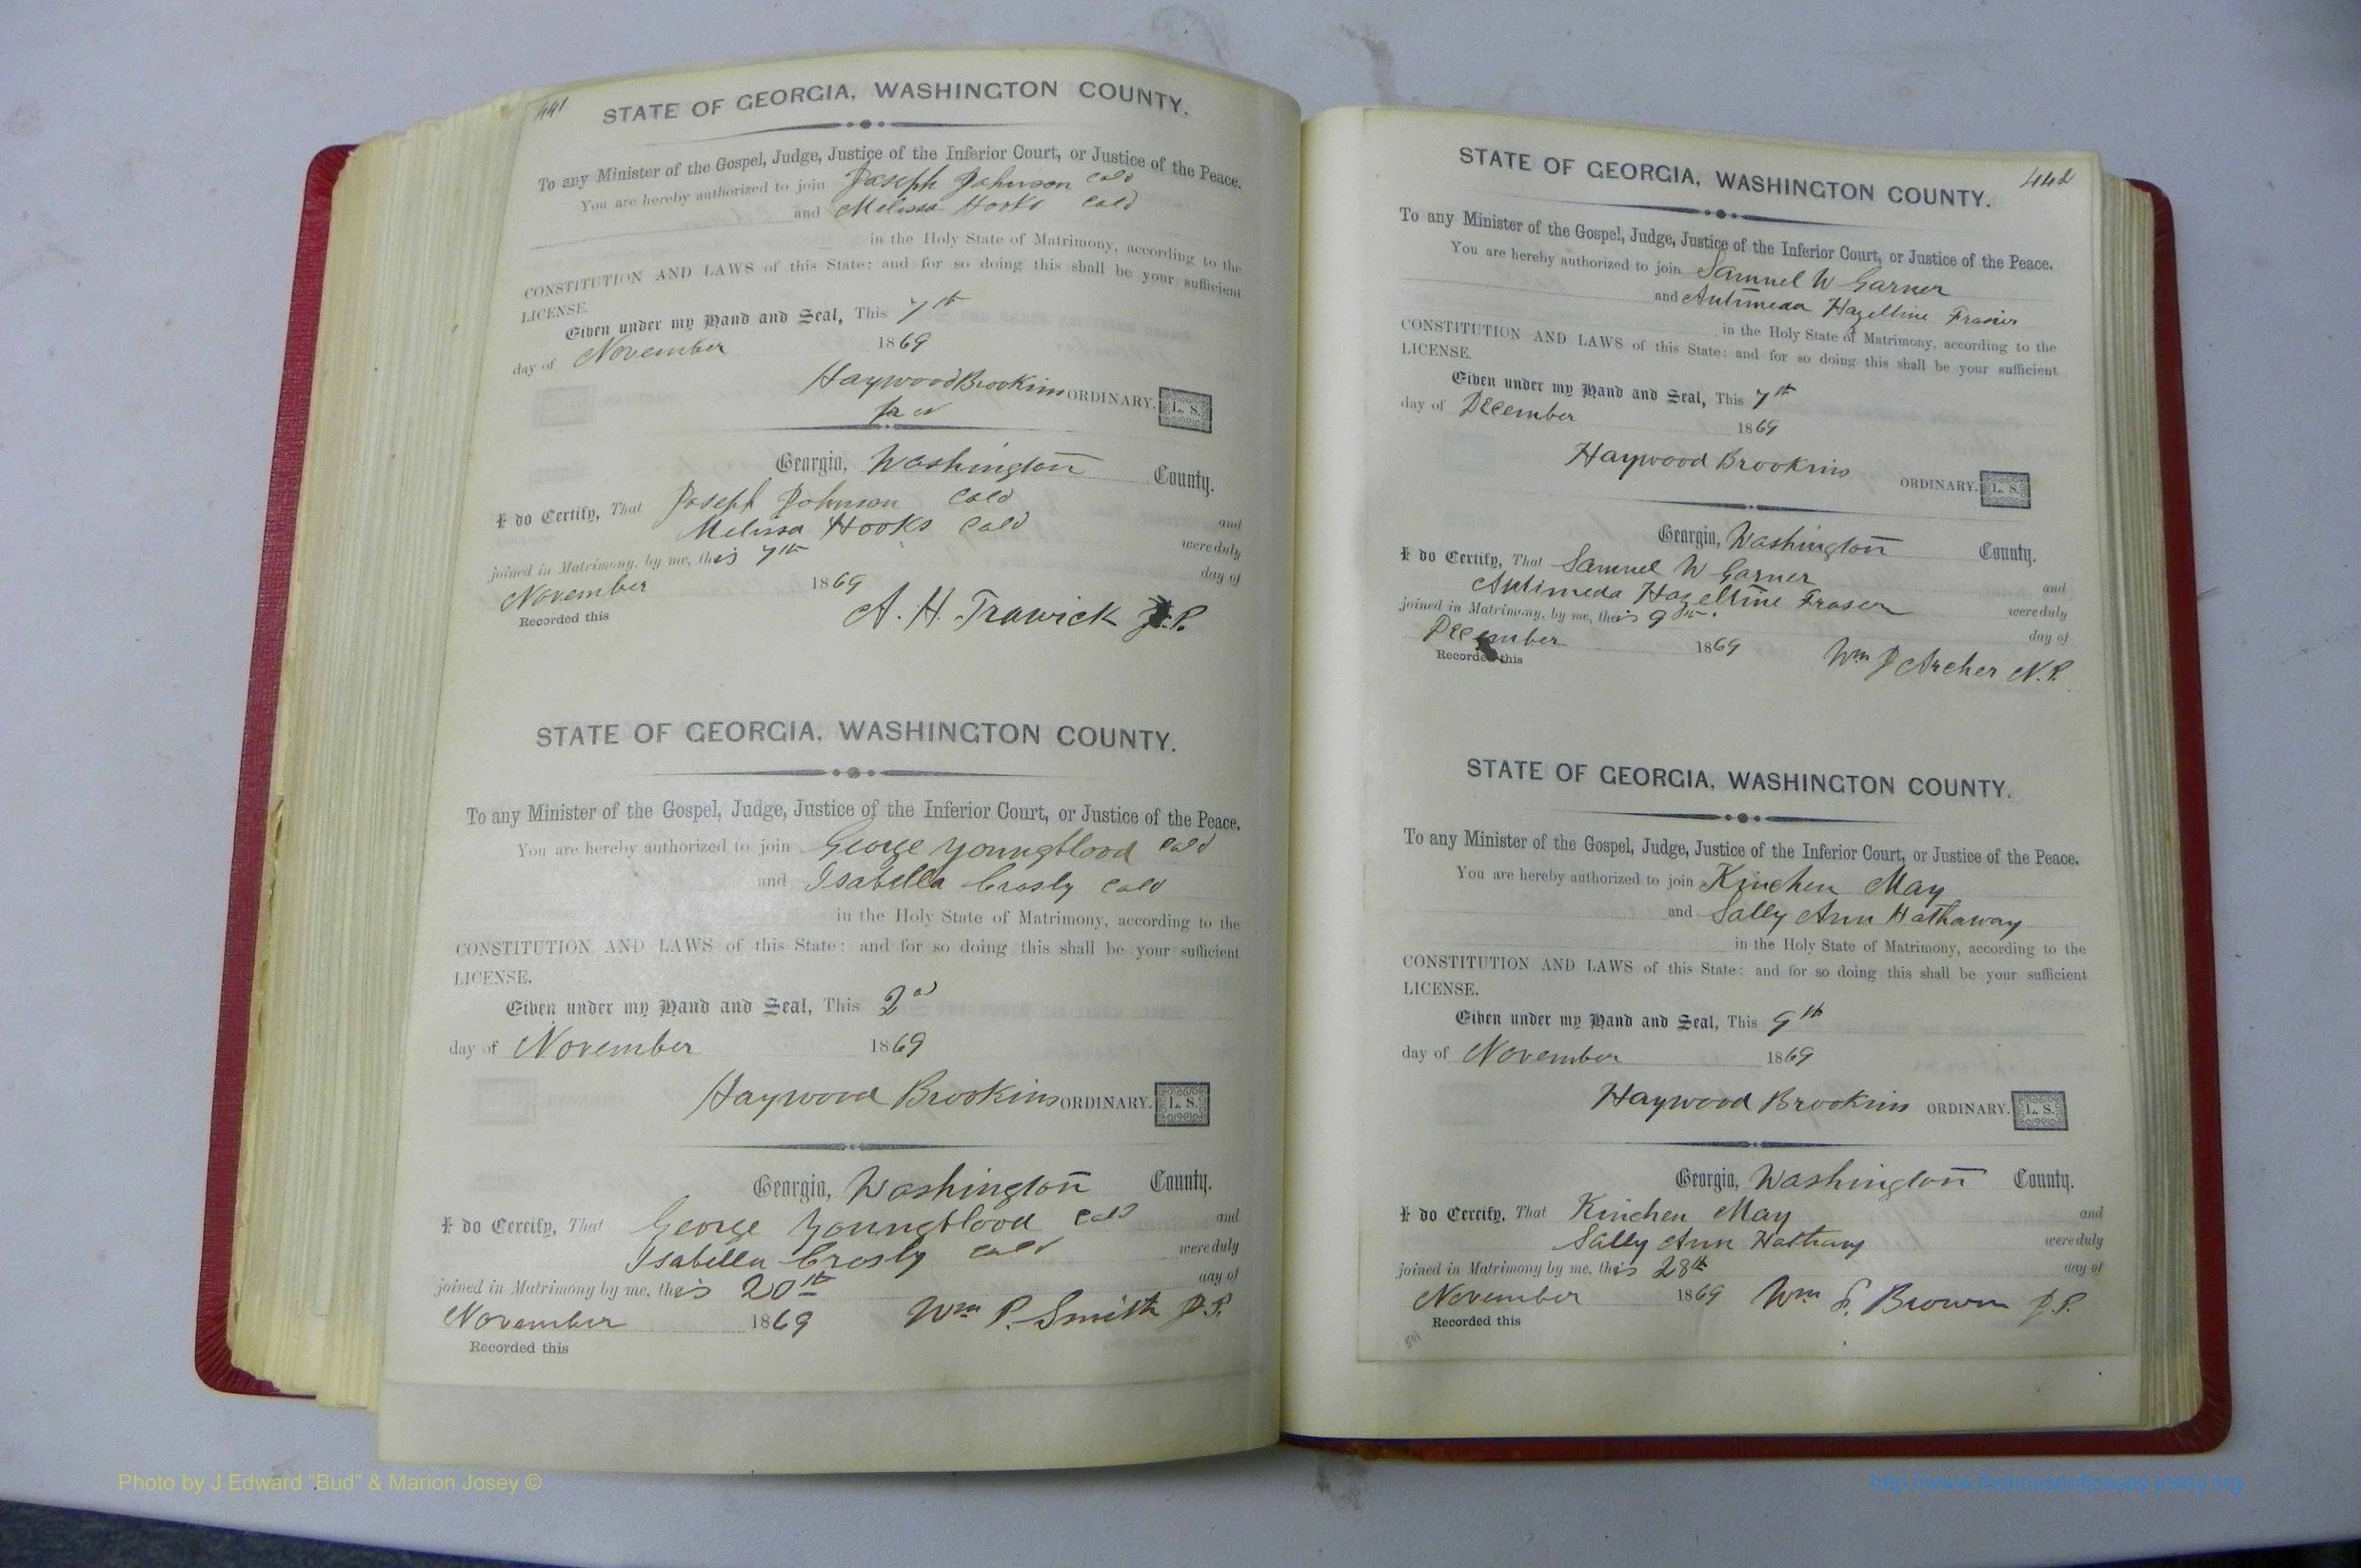 441
STATE OF GEORGIA, WASHINGTON COUNTY.
To any Minister of the Gospel, Judge, Justice of the Inferior Court, or Justice of the Peace.
You are hereby authorized to join Joseph Johnson cold
and Melissa Hooks cold
in the Holy State of Matrimony, according to the
CONSTITUTION AND LAWS of this State: and for so doing this shall be your sufficient
LICENSE.
Given under my Hand and Seal, This 7th
day of November 1869
Haywood Brookins ORDINARY. L. S.
Georgia, Washington County.
I do Certify, That Joseph Johnson cold
Melissa Hooks cold and
were duly
joined in Matrimony, by me, this 7th day of
November 1869
A. H. Trawick J.P.
Recorded this
STATE OF GEORGIA, WASHINGTON COUNTY.
To any Minister of the Gospel, Judge, Justice of the Inferior Court, or Justice of the Peace.
You are hereby authorized to join George Youngblood cold
and Isabella Crosly cold
in the Holy State of Matrimony, according to the
CONSTITUTION AND LAWS of this State: and for so doing this shall be your sufficient
LICENSE.
Given under my Hand and Seal, This 2d
day of November 1869
Haywood Brookins ORDINARY. L. S.
Georgia, Washington County.
I do Certify, That George Youngblood cold and
Isabella Crosly cold were duly
joined in Matrimony by me, this 20th day of
November 1869 Wm P. Smith J.P.
Recorded this
442
STATE OF GEORGIA, WASHINGTON COUNTY.
To any Minister of the Gospel, Judge, Justice of the Inferior Court, or Justice of the Peace.
You are hereby authorized to join Samuel W Garner
and Antimeda Hazeltine Frasier
in the Holy State of Matrimony, according to the
CONSTITUTION AND LAWS of this State: and for so doing this shall be your sufficient
LICENSE.
Given under my Hand and Seal, This 7th
day of December 1869
Haywood Brookins ORDINARY. L. S.
Georgia, Washington County.
I do Certify, That Samuel W Garner and
Antimeda Hazeltine Fraser were duly
joined in Matrimony, by me, this 9th day of
December 1869 Wm J Archer N.P.
Recorded this
STATE OF GEORGIA, WASHINGTON COUNTY.
To any Minister of the Gospel, Judge, Justice of the Inferior Court, or Justice of the Peace.
You are hereby authorized to join Kinchen May
and Sally Ann Hathaway
in the Holy State of Matrimony, according to the
CONSTITUTION AND LAWS of this State: and for so doing this shall be your sufficient
LICENSE.
Given under my Hand and Seal, This 9th
day of November 1869
Haywood Brookins ORDINARY. L. S.
Georgia, Washington County.
I do Certify, That Kinchen May and
Sally Ann Hathaway were duly
joined in Matrimony by me, this 28th day of
November 1869 Wm S. Brown J.P.
Recorded this
Photo by J Edward "Bud" & Marion Josey ©